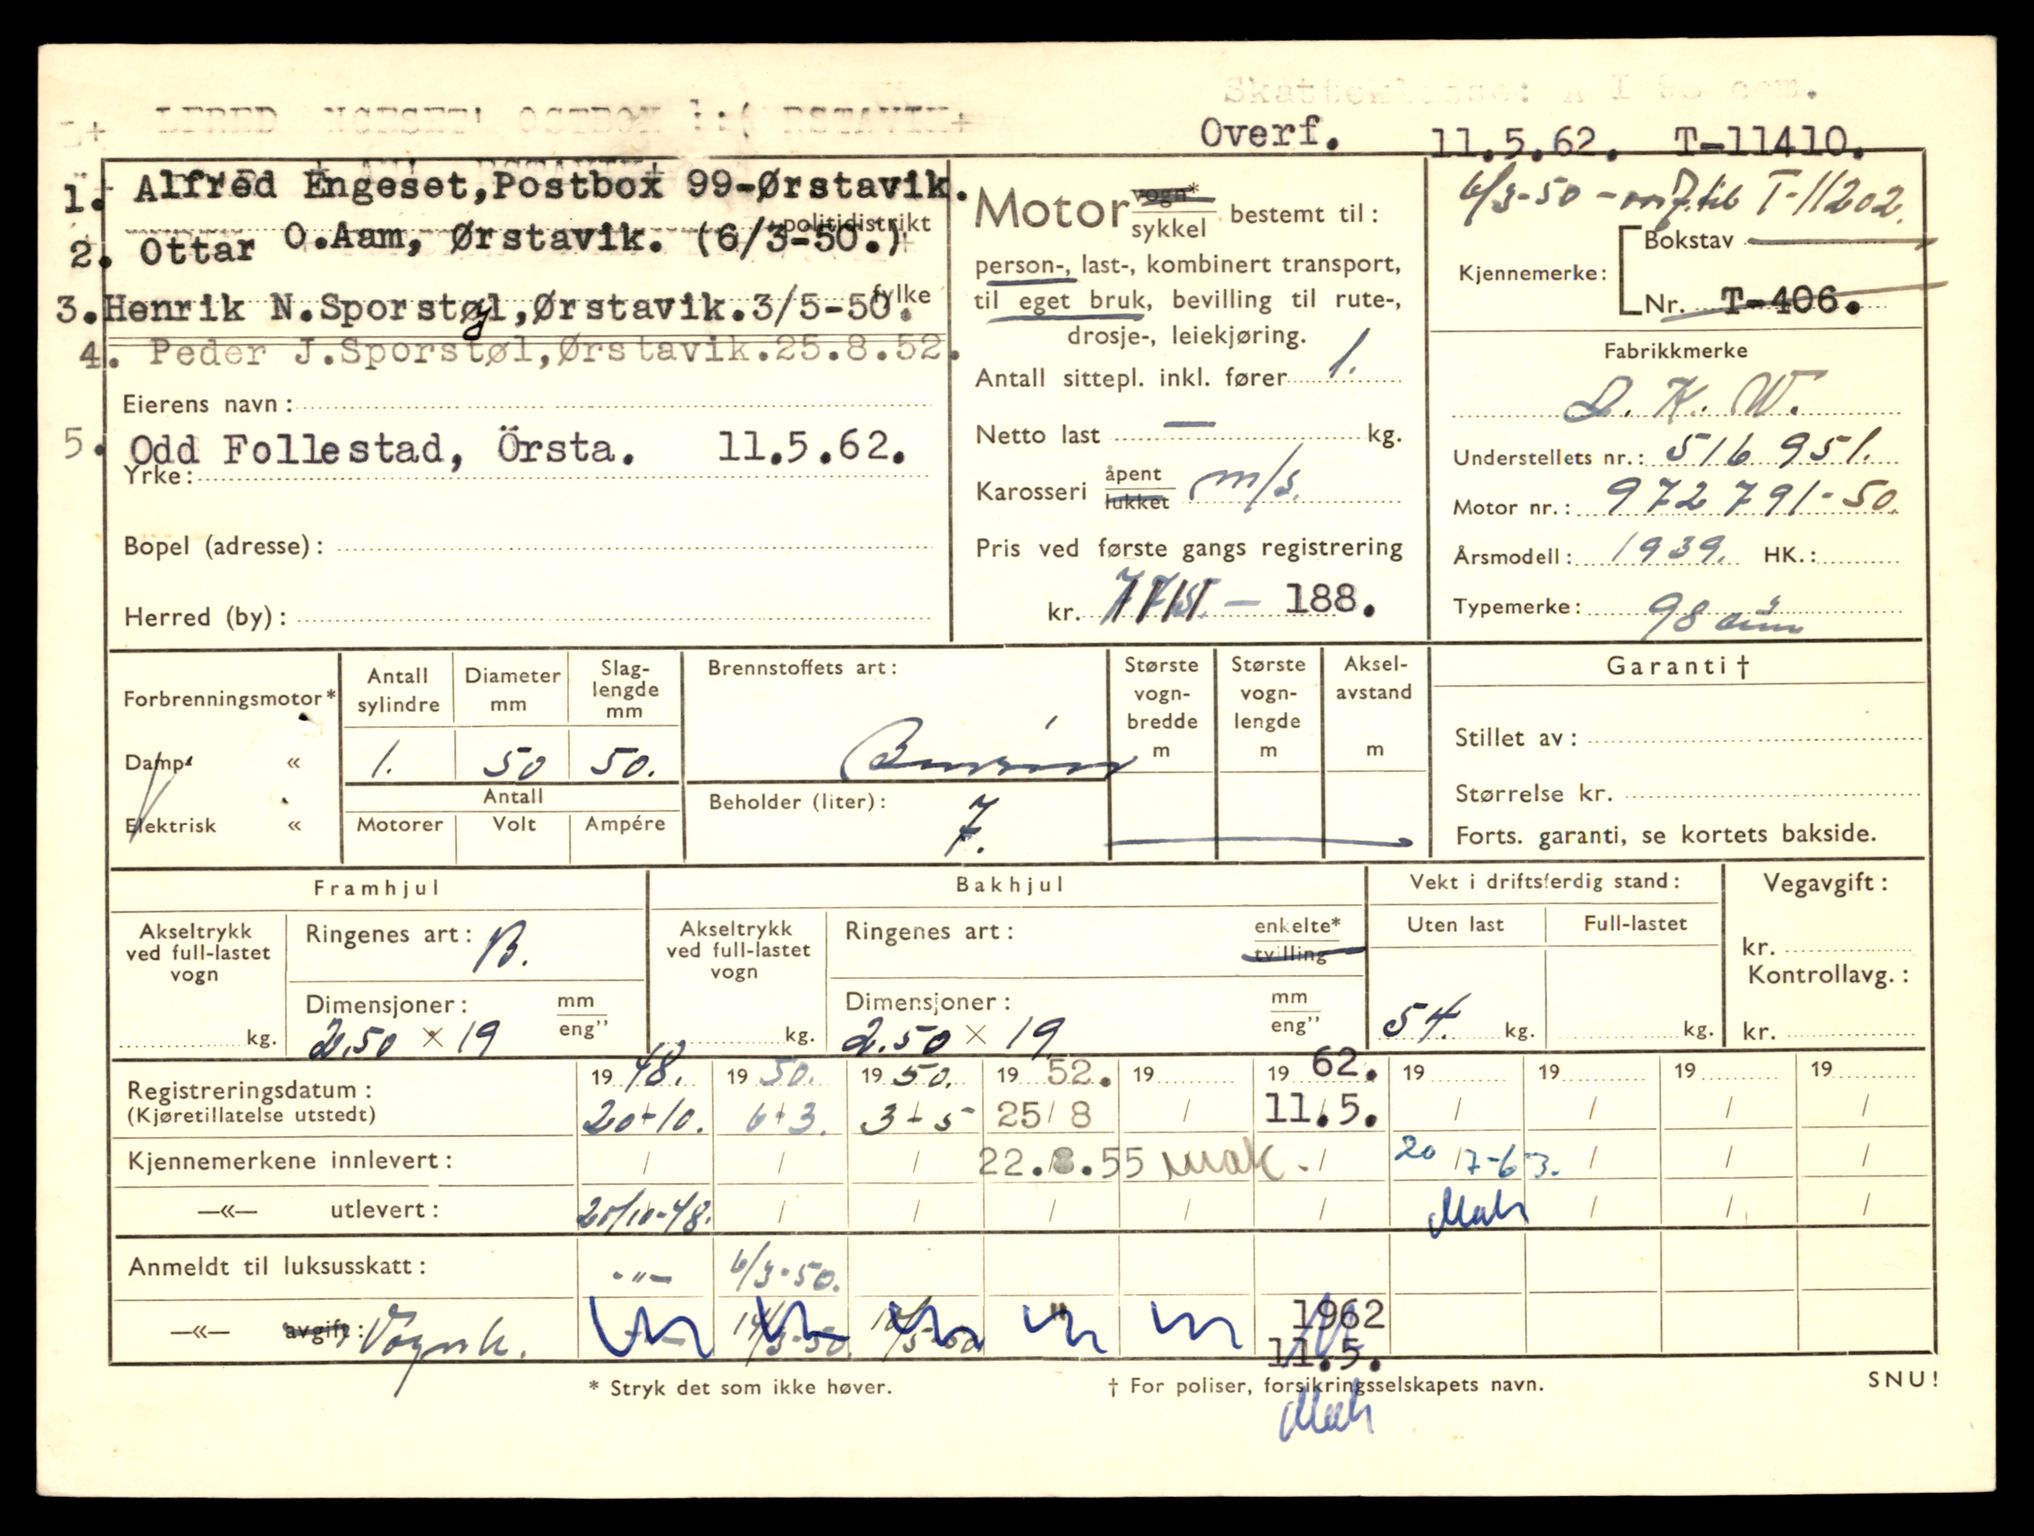 Skatteklasse:
Overf. 11.5.62. T-11410.
1. Alfred Engeset,Postbox 99-Ørstavik.
politidistrikt
2. Ottar O.Aam, Ørstavik. (6/3-50.)
fylke
3.Henrik N.Sporstøl,Ørstavik.3/5-50.
4. Peder J.Sporstøl,Ørstavik.25.8.52.
Eierens navn:
5. Odd Follestad, Örsta. 11.5.62.
Yrke:
Bopel (adresse):
Herred (by):
Motor vogn* / sykkel bestemt til:
person-, last-, kombinert transport,
til eget bruk, bevilling til rute-,
drosje-, leiekjøring.
Antall sittepl. inkl. fører 1.
Netto last — kg.
Karosseri åpent / lukket m/s.
Pris ved første gangs registrering
kr. — 188.
6/3-50 - overf. til T-11202.
Bokstav
Kjennemerke:
Nr. T-406.
Fabrikkmerke
D. K. W.
Understellets nr.: 516 951.
Motor nr.: 972 791-50.
Årsmodell: 1939. HK.:
Typemerke: 98
Forbrenningsmotor*
Damp «
Elektrisk «
Antall sylindre
Diameter mm
Slag-
lengde
mm
1. 50 50.
Antall
Motorer Volt Ampére
Brennstoffets art:
Bensin
Beholder (liter):
7.
Største vogn-bredde m
Største vogn-lengde m
Aksel-avstand m
Garanti†
Stillet av:
Størrelse kr.
Forts. garanti, se kortets bakside.
Framhjul
Akseltrykk
ved full-lastet
vogn
kg.
Ringenes art: B.
Dimensjoner: mm / eng”
2.50 × 19
Bakhjul
Akseltrykk
ved full-lastet
vogn
kg.
Ringenes art: enkelte* / tvilling
Dimensjoner: mm / eng”
2.50 × 19
Vekt i driftsferdig stand:
Uten last Full-lastet
54. kg. kg.
Vegavgift:
kr.
Kontrollavg.:
kr.
Registreringsdatum: 19 48. 19 50. 19 50. 19 52. 19 19 62. 19 19 19 19
(Kjøretillatelse utstedt) 20/10. 6/3. 3/5 25/8 / 11.5. / / / /
Kjennemerkene innlevert: / / / 22.8.55 Mak. / 20/7-63. / / /
—«— utlevert: 20/10-48. / / / / / Mak / / /
Anmeldt til luksusskatt: -"- 6/3-50.
—«— avgift: Vognk. 14/3-50. 1962
11.5.
* Stryk det som ikke høver.
† For poliser, forsikringsselskapets navn.
SNU!
Mak